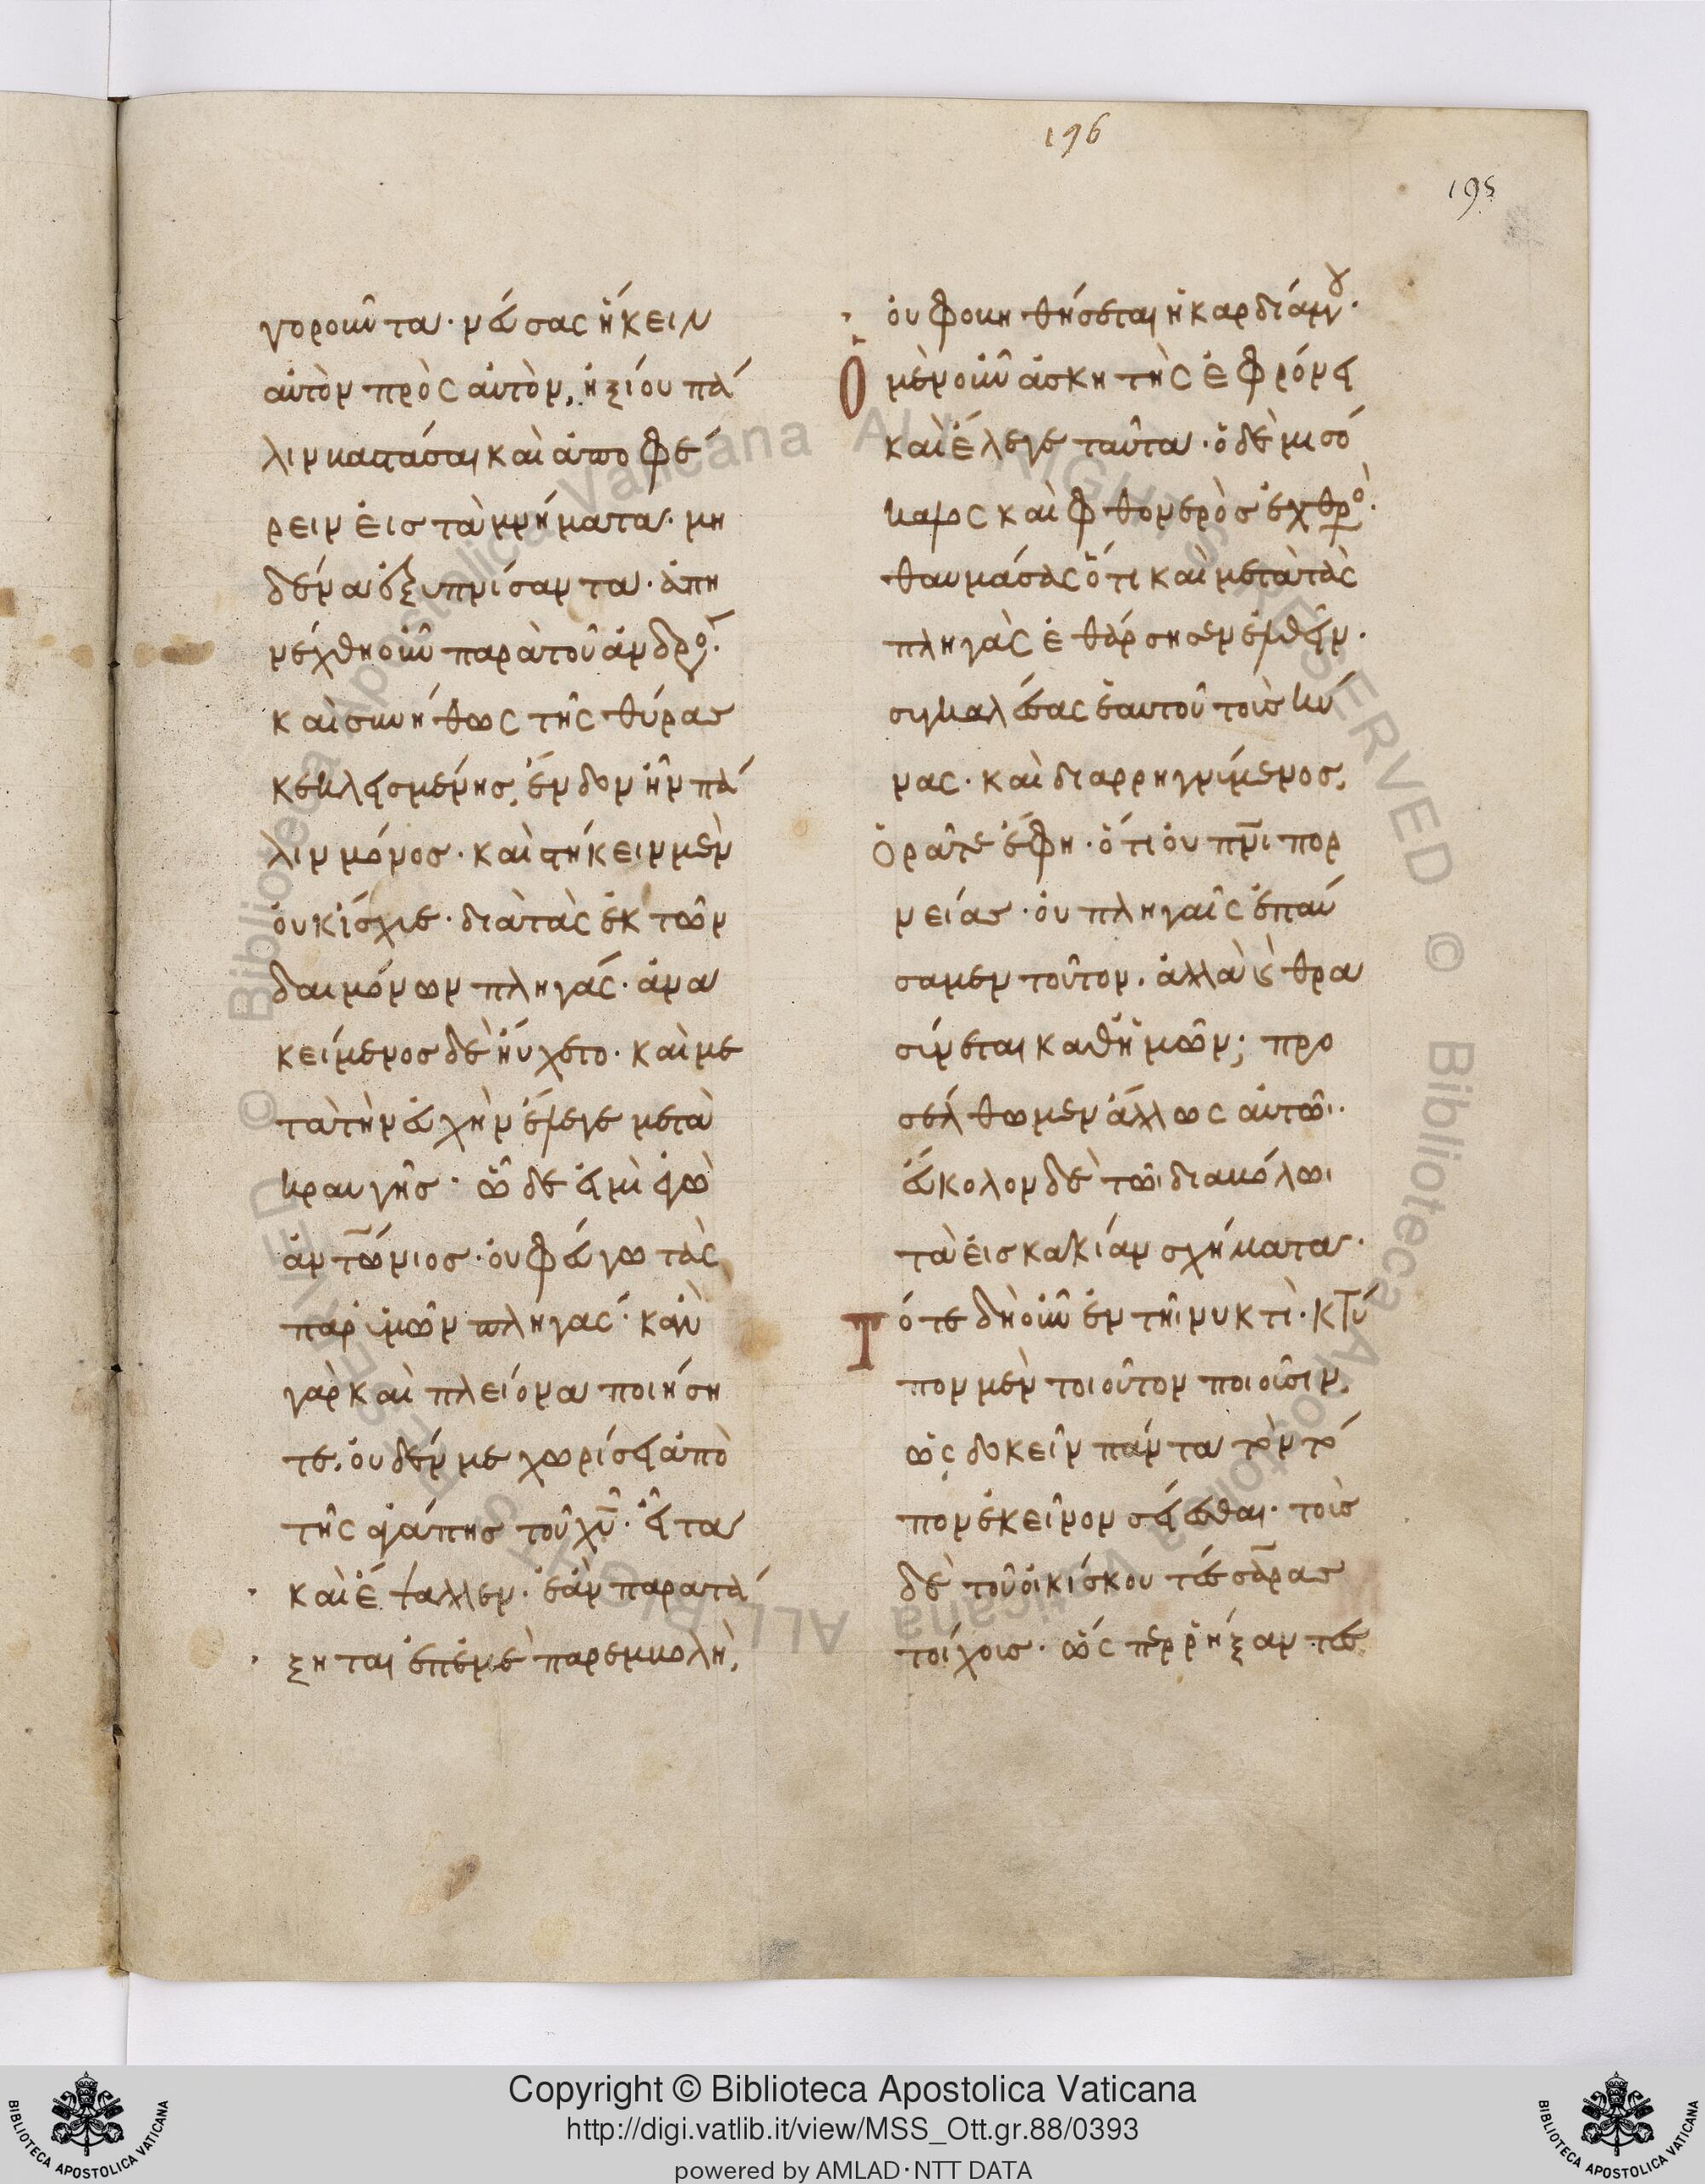 196
195
γοροῦντα· νεύσας ἥκειν
αὐτὸν πρὸς αὐτὸν, ἠξίου πά
λιν βαστάσαι καὶ ἀποφέ
ρειν εἰς τὰ μνήματα· μη
δένα ἐξυπνίσαντα· ἀπη
νέχθη οὖν παρὰ τοῦ ἀνδρό·
καὶ συνήθως τῆς θύρας
κεκλεισμένης, ἔνδον ἦν πά
λιν μόνος· καὶ στήκειν μὲν
οὐκ ἴσχυε· διὰ τὰς ἐκ τῶν
δαιμόνων πληγάς· ἀνα
κείμενος δὲ ηὔχετο· καὶ με
τὰ τὴν εὐχὴν ἔλεγε μετὰ
κραυγῆς· ὧδε εἰμὶ ἐγὼ
ἀντώνιος· οὐ φεύγω τὰς
παρ' ὑμῶν πληγάς· κἂν
γὰρ καὶ πλείονα ποιήση
τε, οὐδέν με χωρίσει ἀπὸ
τῆς ἀγάπης τοῦ χυ· εἶτα
καὶ ἔψαλλεν· ἐὰν παρατά
ξηται ἐπ' ἐμὲ παρεμβολὴ,
οὐ φοβηθήσεται ἡ καρδία μου·
Ὁ μὲν οὖν ἀσκητὴς ἐφρόνει
καὶ ἔλεγε ταῦτα· ὁ δὲ μισό
καλος καὶ φθονερὸς ἐχθρὸ·
θαυμάσας ὅτι καὶ μετὰ τὰς
πληγὰς ἐθάρσησεν ἐλθεῖν·
συγκαλέσας ἑαυτοῦ τοὺς κύ
νας· καὶ διαρρηγνύμενος,
Ὁρᾶτε ἔφη· ὅτι οὐ πνι πορ
νείας· οὐ πληγαῖς ἐπαύ
σαμεν τοῦτον, ἀλλὰ καὶ θρα
σύνεται καθ' ἡμῶν; προ
σέλθωμεν ἄλλως αὐτῶι·
εὔκολον δὲ τῶι διαβόλωι
τὰ εἰς κακίαν σχήματα·
Τότε δὴ οὖν ἐν τῆι νυκτὶ· κτύ
πον μὲν τοιοῦτον ποιοῦσιν,
ὡς δοκεῖν πάντα τὸν τό
πον ἐκεῖνον σείεσθαι· τοὺς
δὲ τοῦ οἰκίσκου τέσσαρας
τοίχους· ὥσπερ ῥήξαντες
Copyright © Biblioteca Apostolica Vaticana
http://digi.vatlib.it/view/MSS_Ott.gr.88/0393
powered by AMLAD·NTT DATA